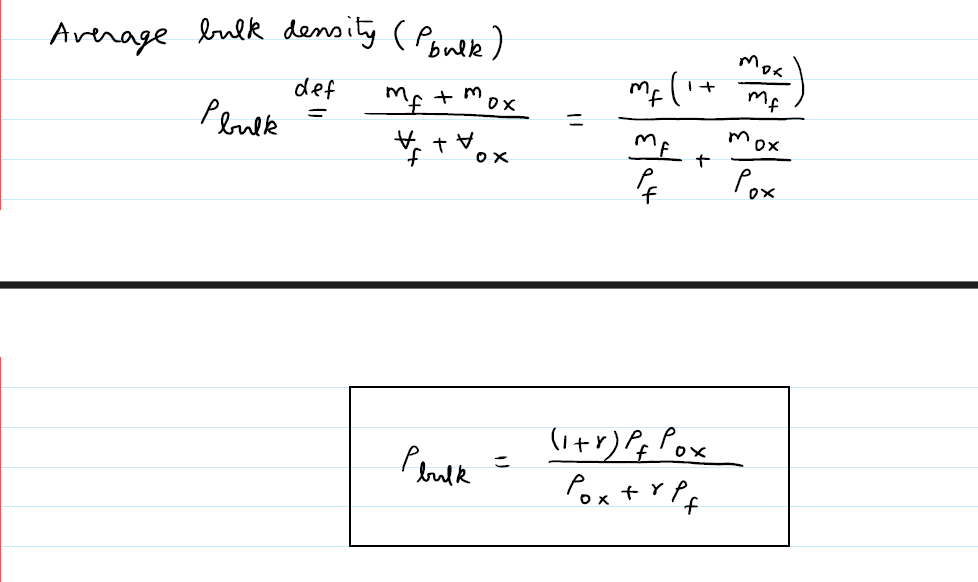 Average bulk density (ρ_bulk)
ρ_bulk def= (m_f + m_ox) / (V_f + V_ox) = m_f (1 + m_ox/m_f) / (m_f/ρ_f + m_ox/ρ_ox)
ρ_bulk = (1+r) ρ_f ρ_ox / (ρ_ox + r ρ_f)